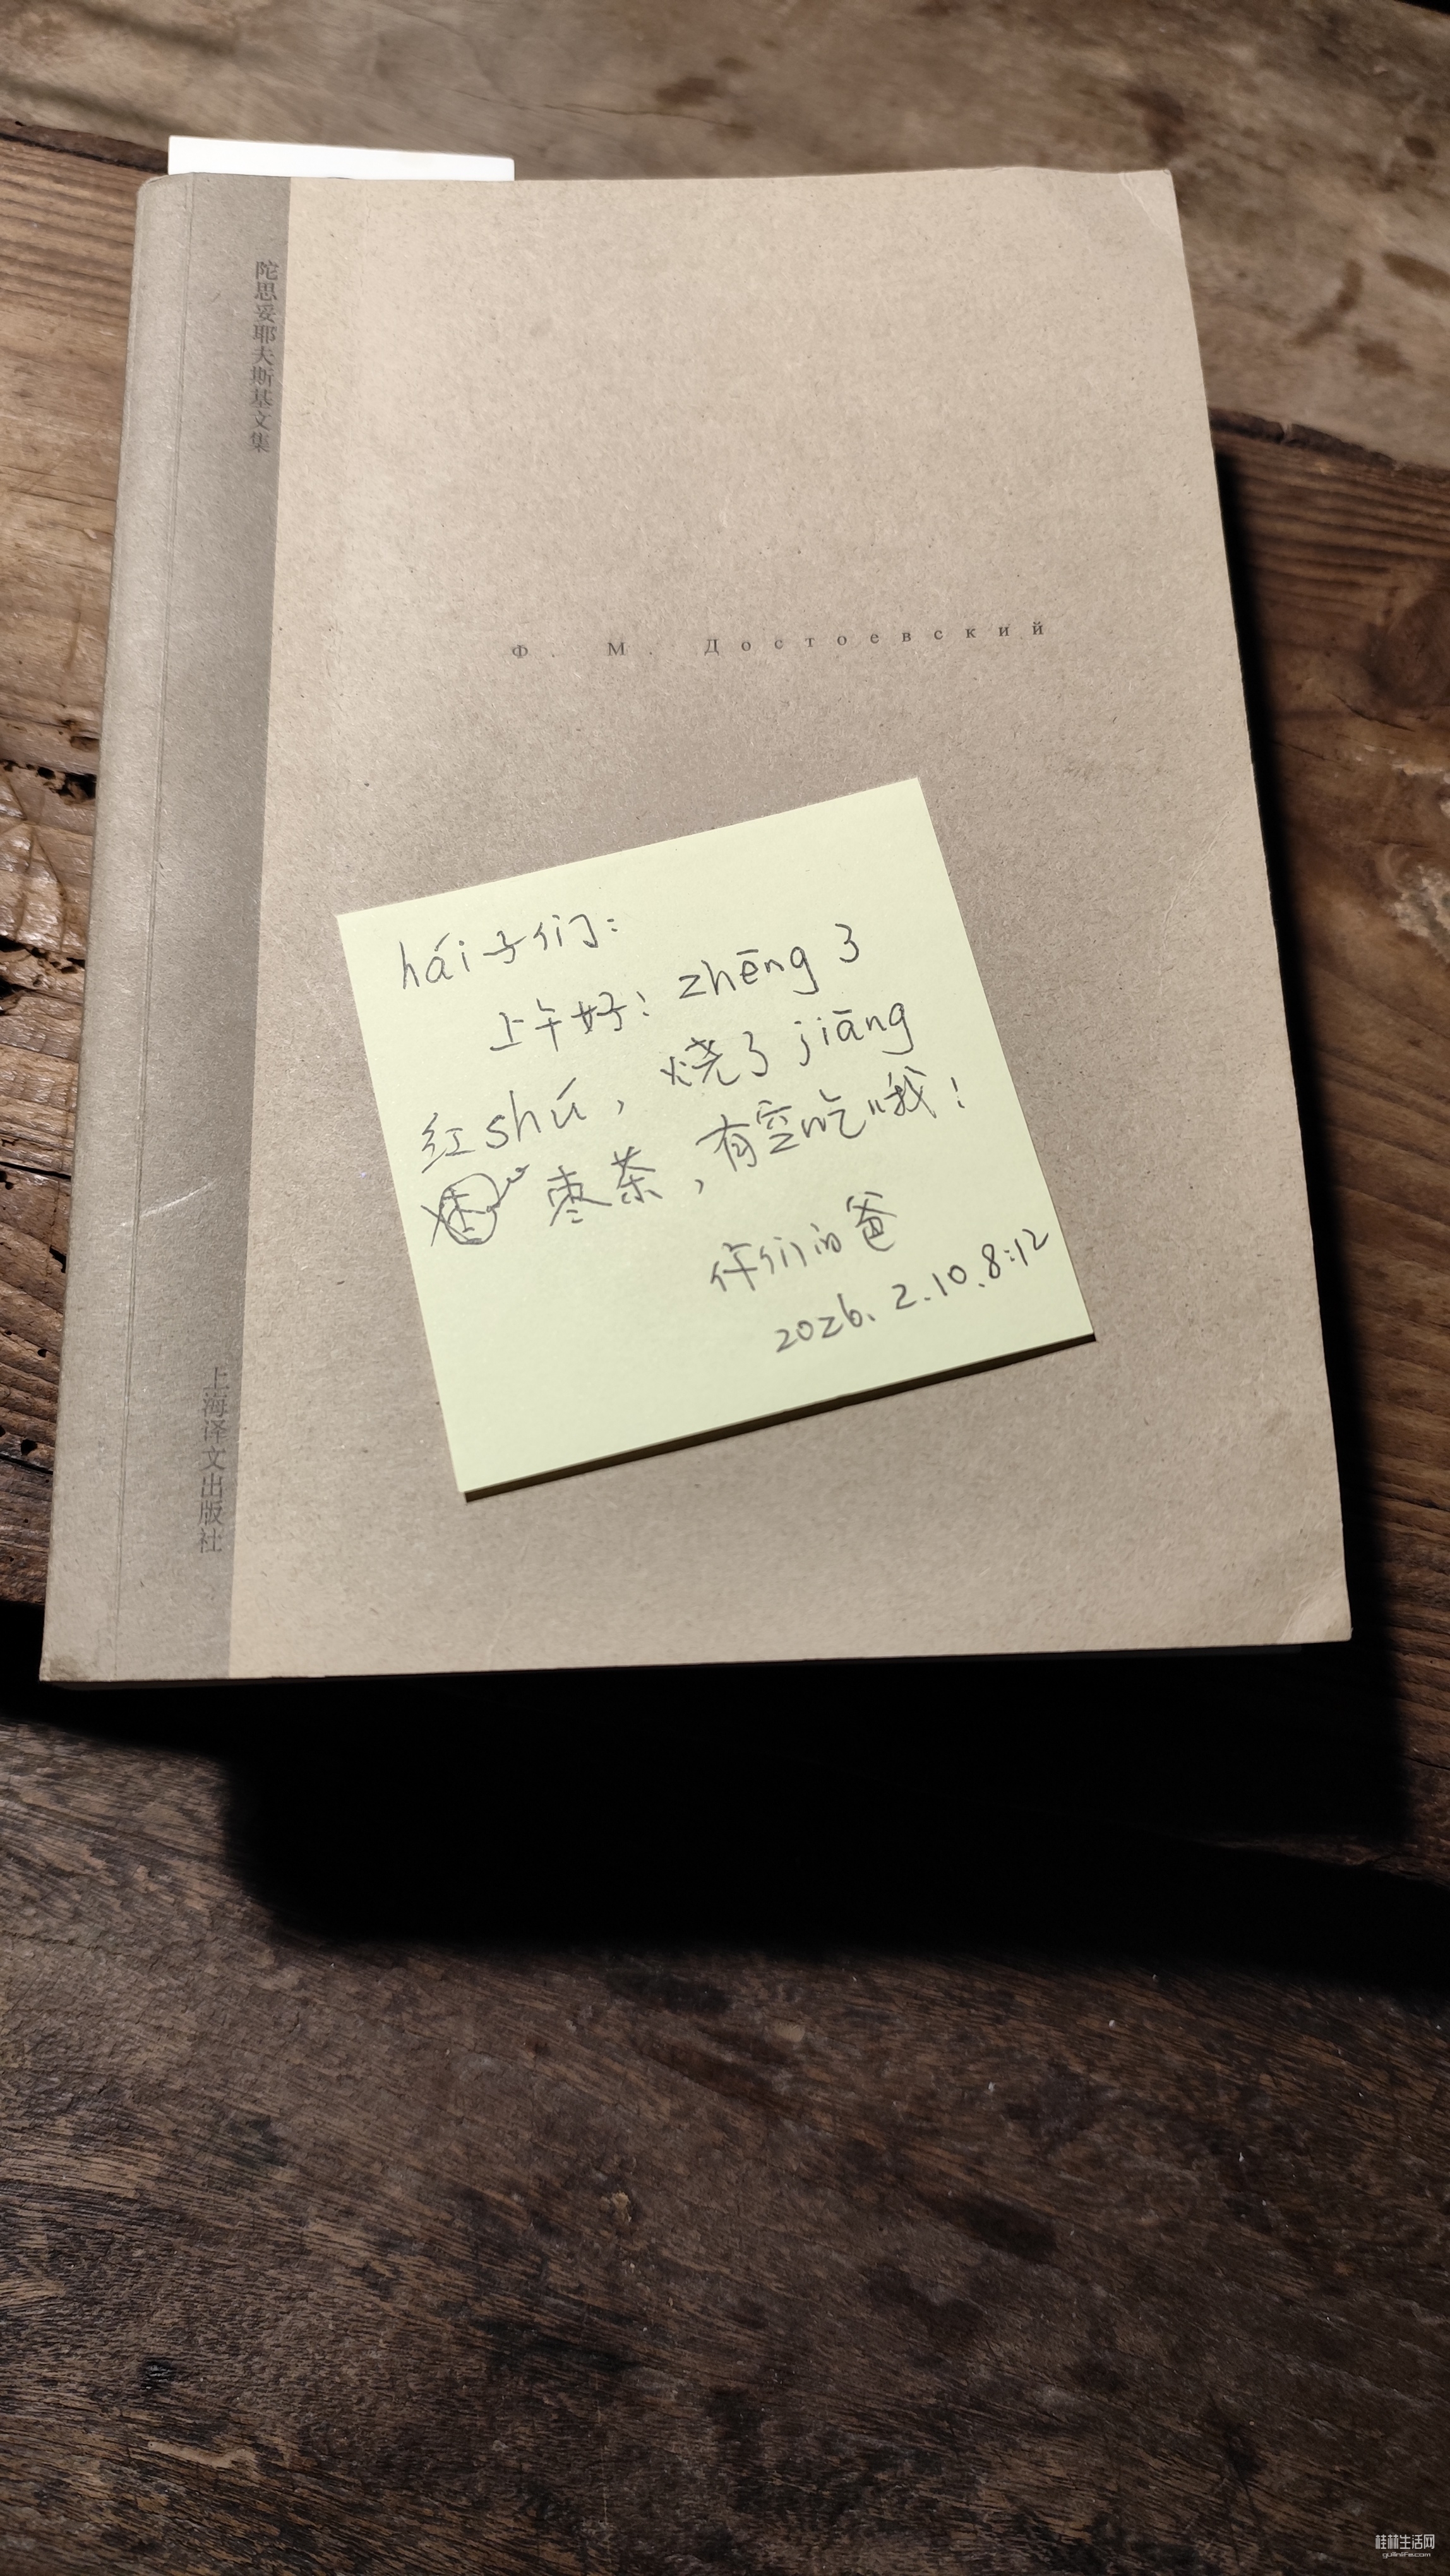 陀思妥耶夫斯基文集
Ф. М. Достоевский
hái子们:
上午好! zhēng了
红shú, 烧了jiāng
枣茶, 有空吃哦!
你们的爸
2026. 2.10. 8:12
上海译文出版社
桂林生活网
guilinlife.com